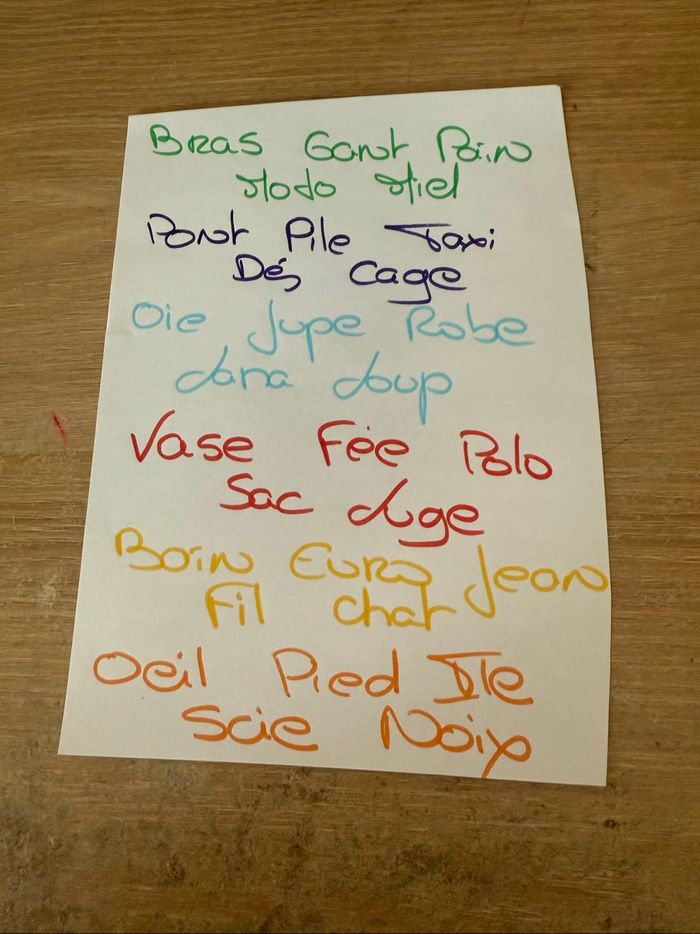 Bras Gant Pain
Moto Miel
Pont Pile Taxi
Dés Cage
Oie Jupe Robe
Lana Loup
Vase Fée Polo
Sac Luge
Bain Euro Jean
Fil Chat
Oeil Pied Île
Scie Noix